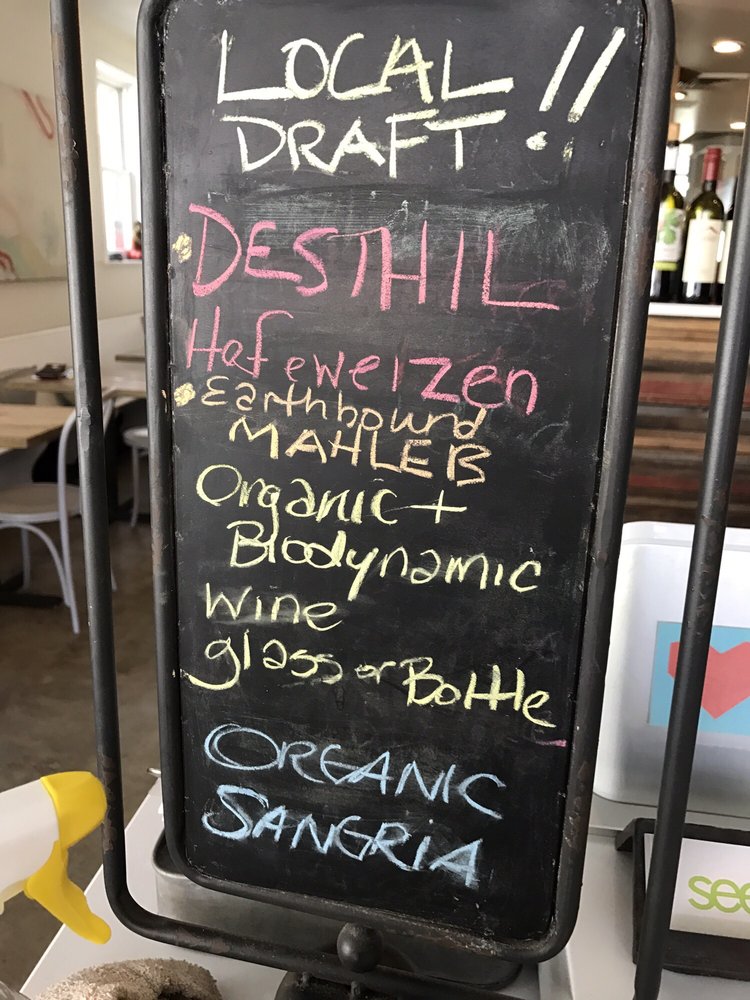 LOCAL !!
DRAFT
DESTHIL
Hefeweizen
Earthbound
MAHLEB
Organic +
Biodynamic
Wine
glass or Bottle
ORGANIC
SANGRIA
see